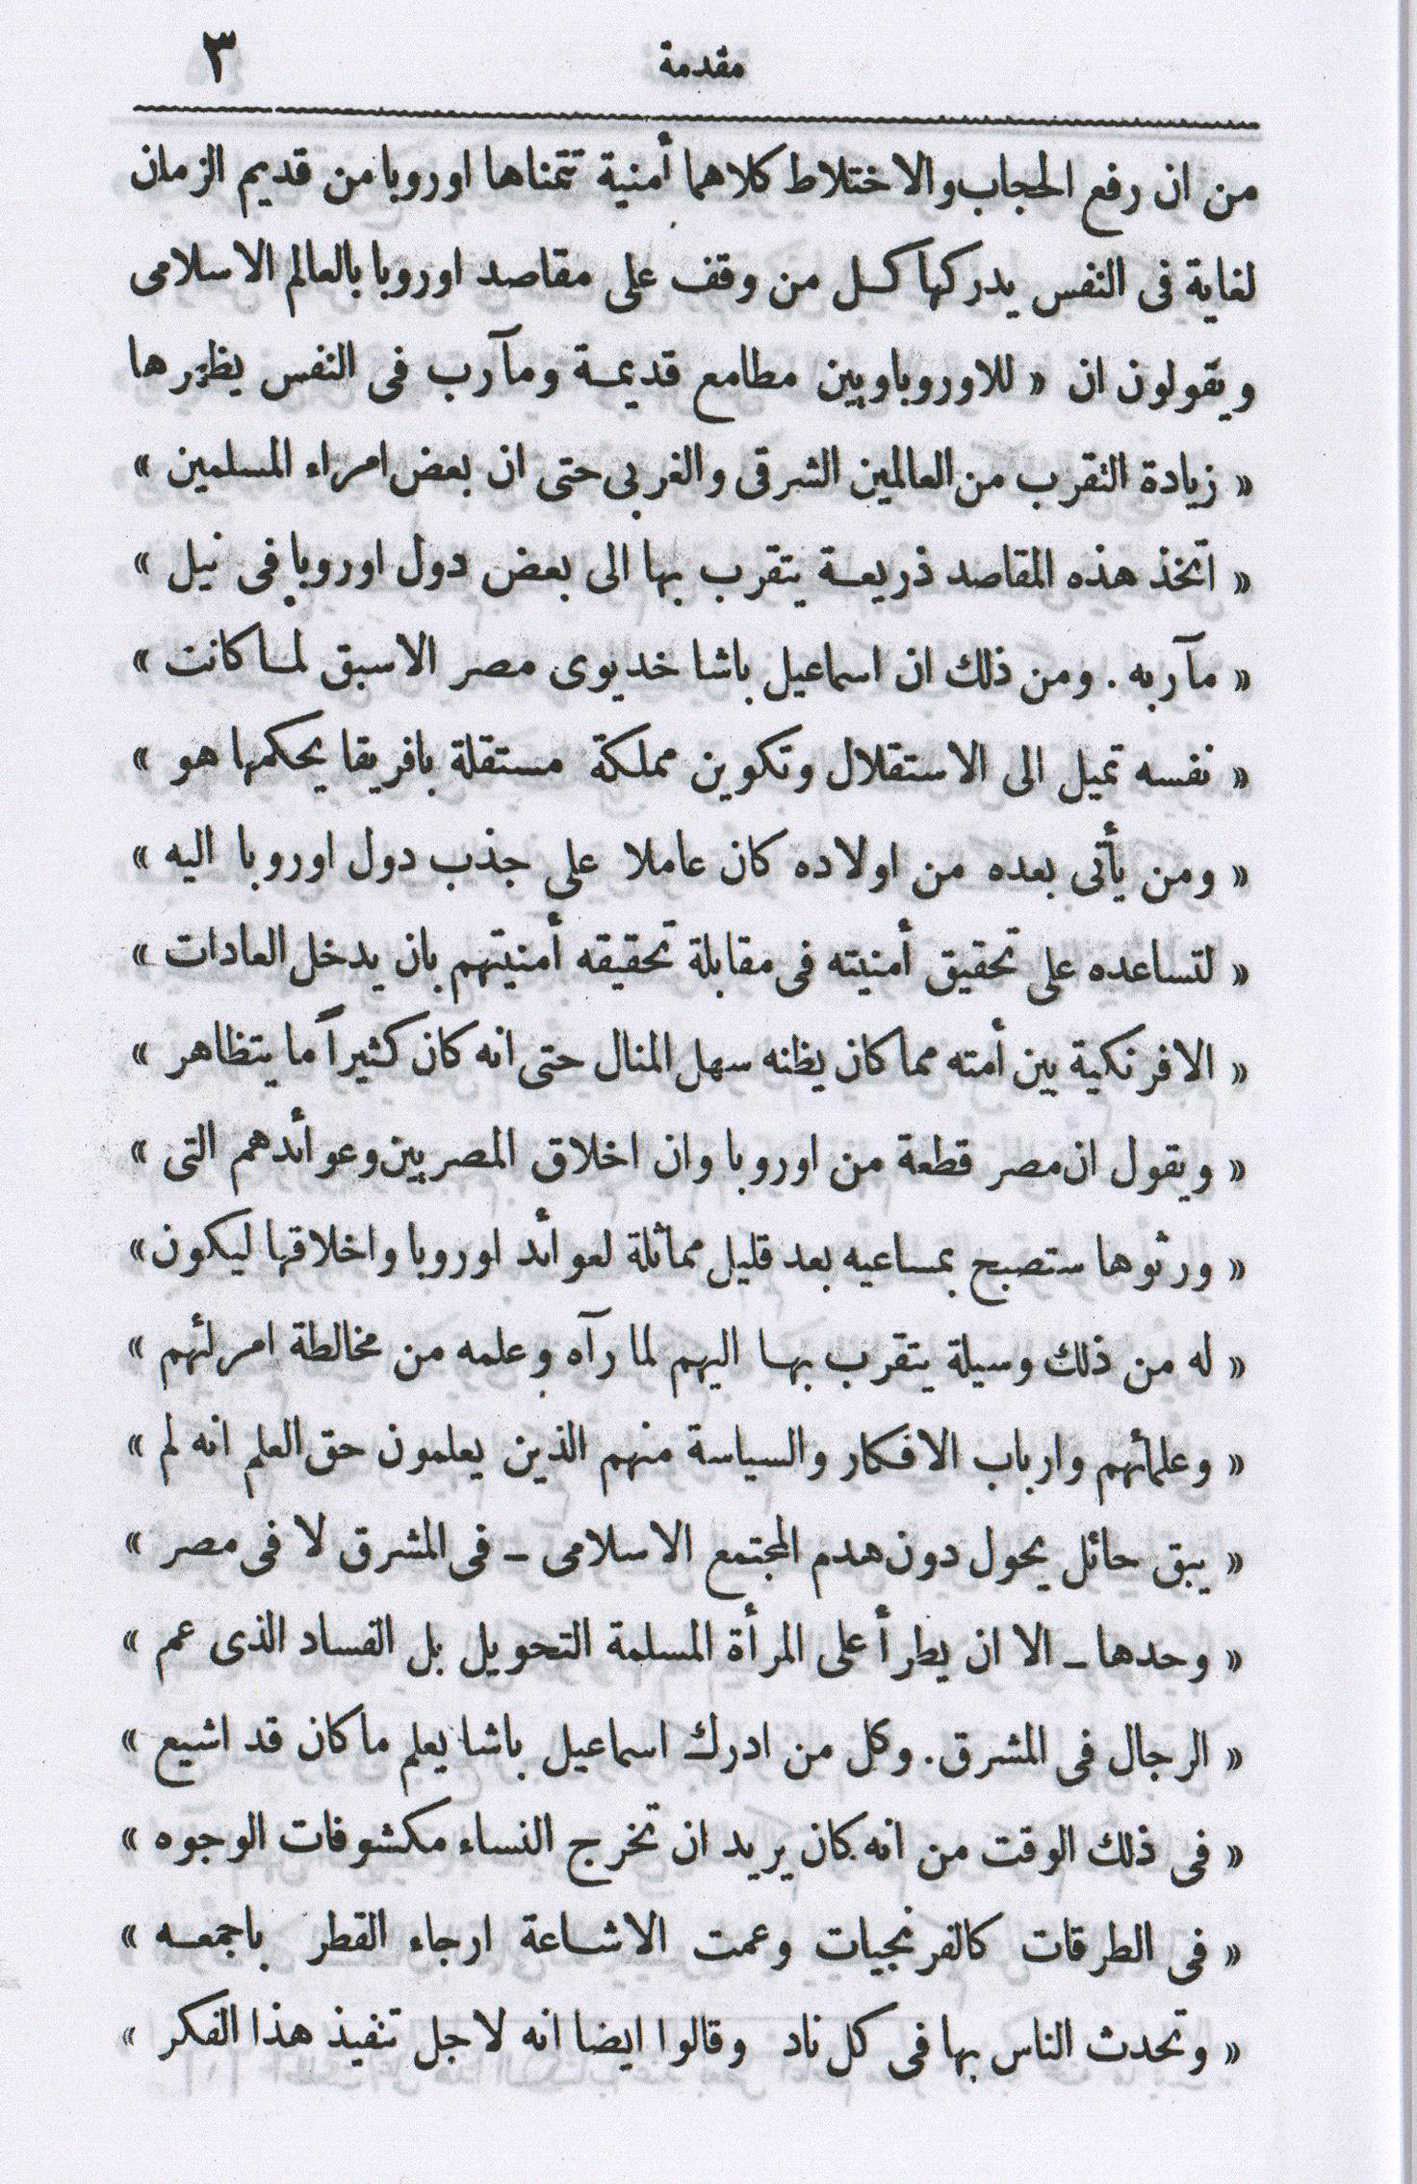 مقدمة ٣
من ان رفع الحجاب والاختلاط كلاهما أمنية تتمناها اوروبا من قديم الزمان
لغاية فى النفس يدركها كل من وقف على مقاصد اوروبا بالعالم الاسلامى
ويقولون ان « للاوروباويين مطامع قديمة ومآرب فى النفس يظهرها
« زيادة التقرب من العالمين الشرقى والغربى حتى ان بعض امراء المسلمين »
« اتخذ هذه المقاصد ذريعة يتقرب بها الى بعض دول اوروبا فى نيل »
« مآربه . ومن ذلك ان اسماعيل باشا خديوى مصر الاسبق لما كانت »
« نفسه تميل الى الاستقلال وتكوين مملكة مستقلة بافريقا يحكمها هو »
« ومن يأتى بعده من اولاده كان عاملا على جذب دول اوروبا اليه »
« لتساعده على تحقيق أمنيته فى مقابلة تحقيقه أمنيتهم بان يدخل العادات »
« الافرنكية بين أمته مما كان يظنه سهل المنال حتى انه كان كثيراً ما يتظاهر »
« ويقول ان مصر قطعة من اوروبا وان اخلاق المصريين وعوائدهم التى »
« ورثوها ستصبح بمساعيه بعد قليل مماثلة لعوائد اوروبا واخلاقها ليكون »
« له من ذلك وسيلة يتقرب بها اليهم لما رآه وعلمه من مخالطة امرائهم »
« وعلمائهم وارباب الافكار والسياسة منهم الذين يعلمون حق العلم انه لم »
« يبق حائل يحول دون هدم المجتمع الاسلامى - فى المشرق لا فى مصر »
« وحدها - الا ان يطرأ على المرأة المسلمة التحويل بل الفساد الذى عم »
« الرجال فى المشرق . وكل من ادرك اسماعيل باشا يعلم ما كان قد اشيع »
« فى ذلك الوقت من انه كان يريد ان تخرج النساء مكشوفات الوجوه »
« فى الطرقات كالفرنجيات وعمت الاشاعة ارجاء القطر باجمعه »
« وتحدث الناس بها فى كل ناد وقالوا ايضا انه لاجل تنفيذ هذا الفكر »